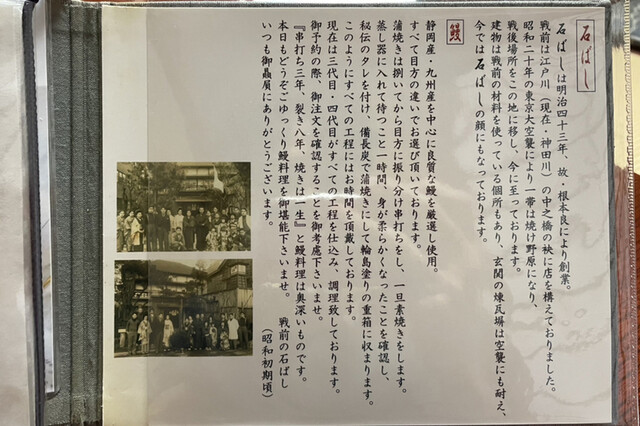 石ばし
石ばしは明治四十三年、故・根本良により創業。
戦前は江戸川（現在・神田川）の中之橋の袂に店を構えておりました。
昭和二十年の東京大空襲により一帯は焼け野原になり、
戦後場所をこの地に移し、今に至っております。
建物は戦前の材料を使っている個所もあり、玄関の煉瓦場は空襲にも耐え、
今では石ばしの顔にもなっております。
鰻
静岡産・九州産を中心に良質な鰻を厳選し使用。
すべて目方の違いでお選び頂いております。
蒲焼きは捌いてから目方に振り分け串打ちをし、一旦素焼きをします。
蒸し器に入れて待つこと一時間、身が柔らかくなったことを確認し、
秘伝のタレを付け、備長炭で蒲焼きにして輪島塗りの重箱に収まります。
このようにすべての工程にはお時間を頂戴しております。
現在は三代目・四代目がすべての工程を仕込み、調理致しております。
御予約の際、御注文を確認することを御考慮下さいませ。
『串打ち三年、裂き八年、焼きは一生』と鰻料理は奥深いものです。
本日もどうぞごゆっくり鰻料理を御堪能下さいませ。
いつも御贔屓にありがとうございます。
戦前の石ばし
（昭和初期頃）